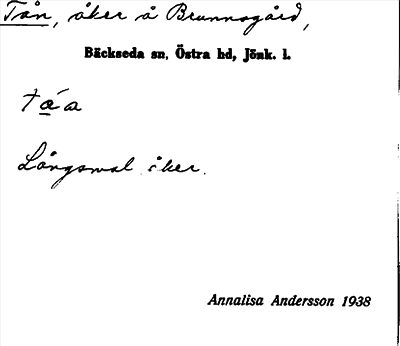 Tån, åker å Brunnsgård,
Bäckseda sn, Östra hd, Jönk. l.
Långsmal åker.
Annalisa Andersson 1938